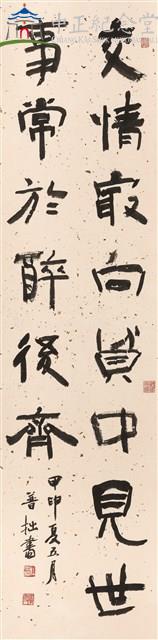 交情冣向貧中見世
事常於醉後齊
甲申夏五月
普拙書
中正紀念堂